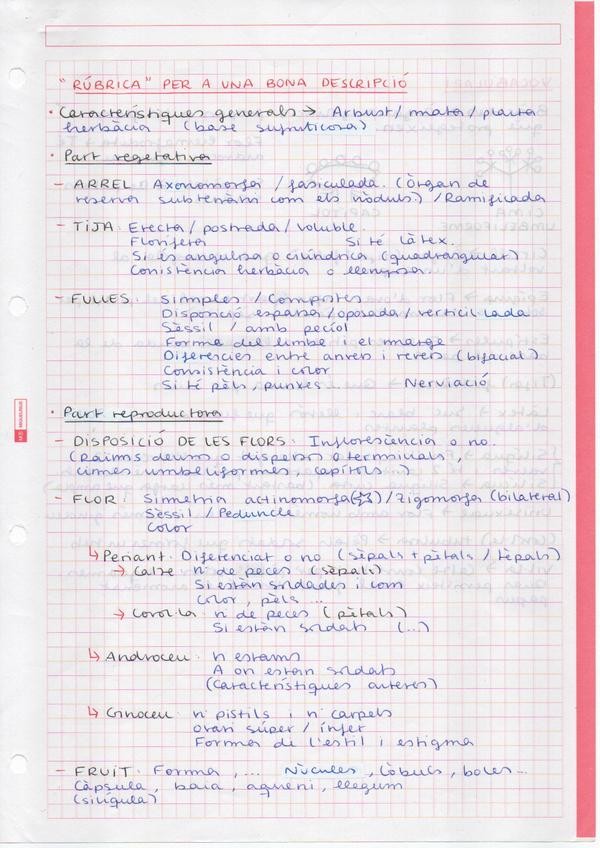 "RÚBRICA" PER A UNA BONA DESCRIPCIÓ
· Característiques generals → Arbust / mata / planta
herbàcia (base sufruticosa)
· Part vegetativa
- ARREL Axonomorfa / fasiculada. (Òrgan de
reserva subterrànis com els nòduls.) / Ramificada
- TIJA: Erecta / postrada / voluble.
Florífera Si té làtex.
Si és angulosa o cilíndrica (quadrangular)
Consistència herbàcia o llenyosa.
- FULLES: Simples / Compostes
Disposició esparsa / oposada / verticil·lada
Sèssil / amb pecíol
Forma del limbe i el marge
Diferències entre anvers i revers (bifacial)
Consistència i color
Si té pèls, punxes Nerviació
· Part reproductora
- DISPOSICIÓ DE LES FLORS: Inflorescència o no.
(Raïms densos o dispersos o terminals,
cimes umbeliformes, capítols...)
- FLOR: Simmetria actinomorfa (☆) / zigomorfa (bilateral)
Sèssil / Peduncle
Color
↳ Periant: Diferenciat o no (sèpals + pètals / tèpals)
→ Calze n° de peces (sèpals)
Si estàn soldades i com
color, pèls ...
→ Corol·la: n° de peces (pètals)
Si estàn soldats (...)
↳ Androceu: n° estams
A on estàn soldats
(Característiques anteres)
↳ Gineceu: n° pistils i n° carpels
ovari súper / ínfer
Forma de l'estil i estigma
- FRUIT: Forma, ... Núcules, lòbuls, boles...
Càpsula, baia, aqueni, llegum
(silíqula)